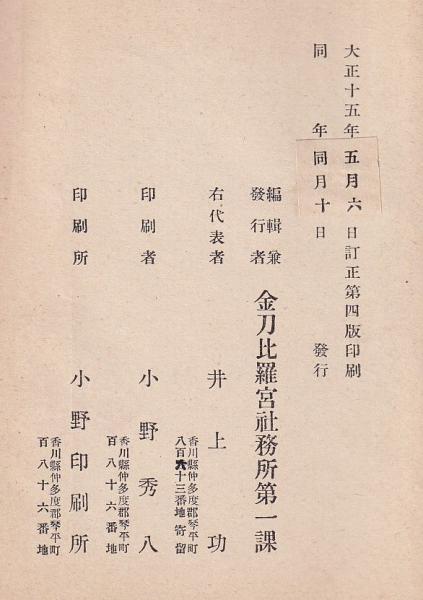 大正十五年五月六日訂正第四版印刷
同年同月十日發行
編輯兼
發行者
金刀比羅宮社務所第一課
右代表者
香川縣仲多度郡琴平町
八百六十三番地寄留
井上功
印刷者
香川縣仲多度郡琴平町
百八十六番地
小野秀八
印刷所
香川縣仲多度郡琴平町
百八十六番地
小野印刷所